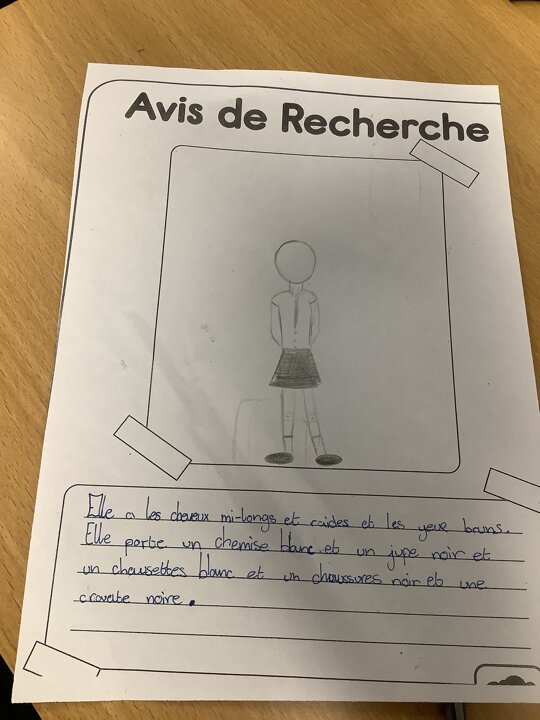 Avis de Recherche
Elle a les cheveux mi-longs et raides et les yeux bruns.
Elle porte un chemise blanc et un jupe noir et
un chausettes blanc et un chaussures noir et une
cravate noire.